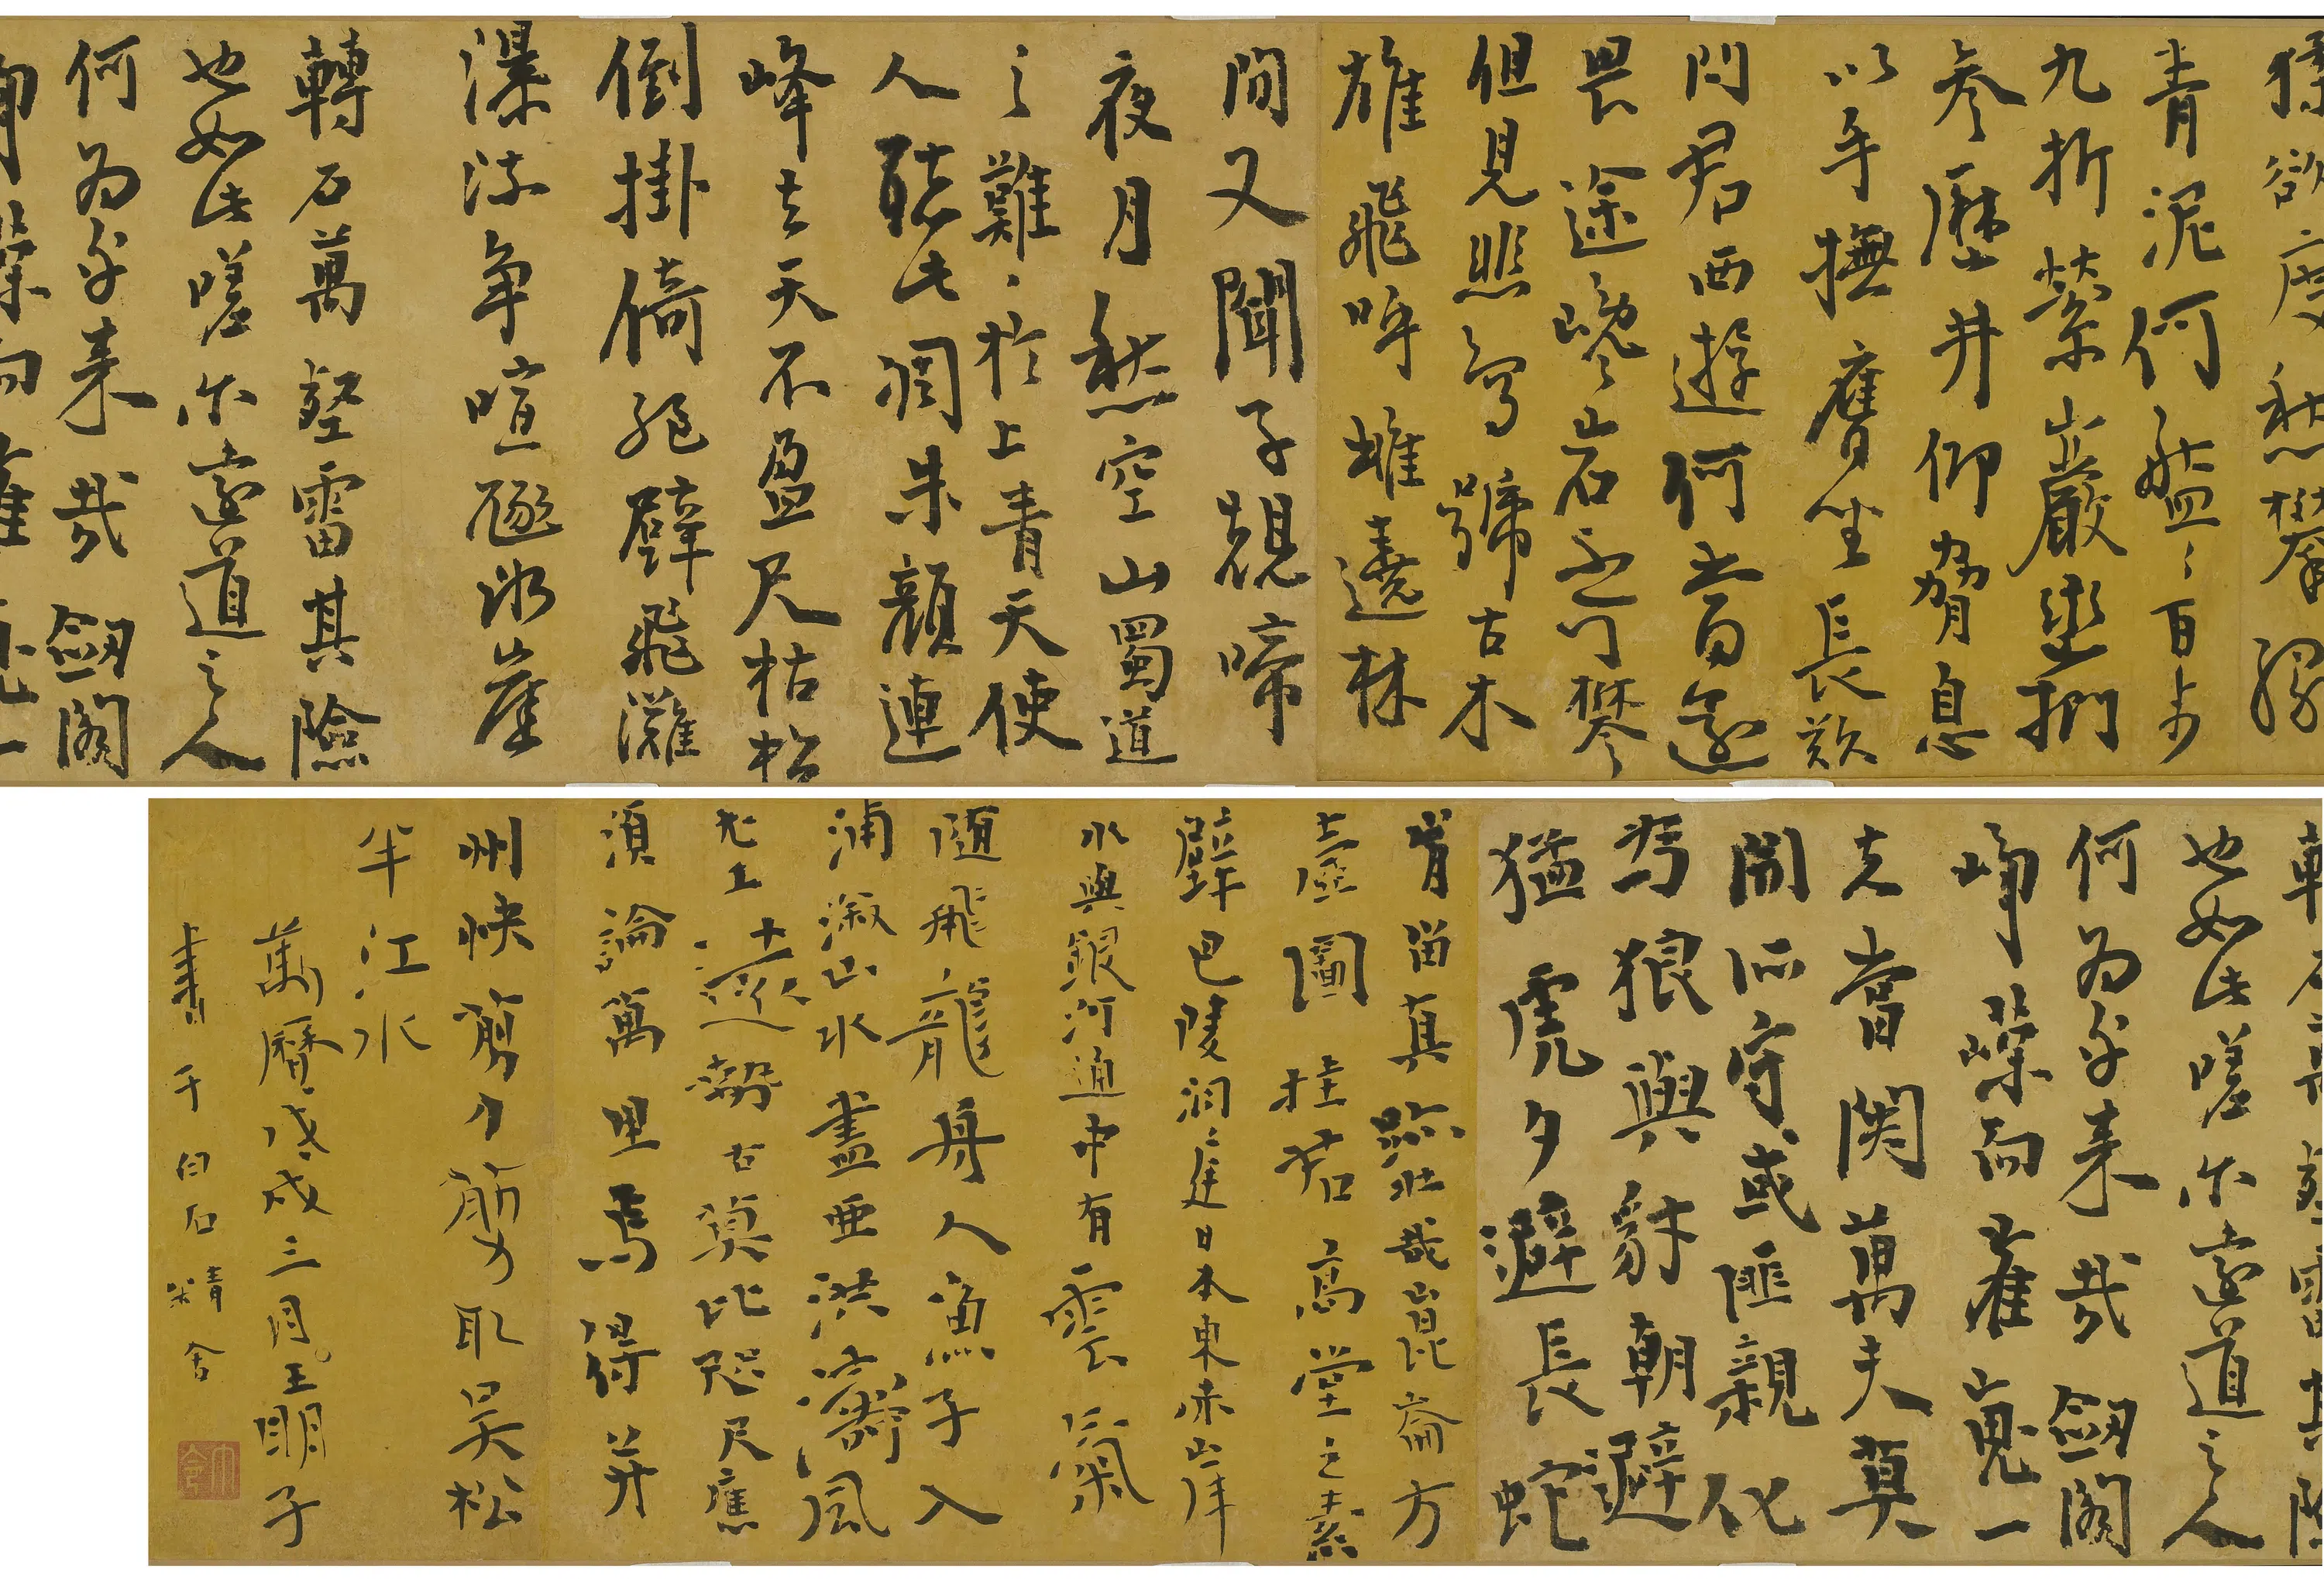 猱欲度愁攀緣
青泥何盤〻百步
九折縈巖巒捫
參歷井仰脅息
以手撫膺坐長歎
問君西遊何旹還
畏途巉〻岩不可攀
但見悲鳥號古木
雄飛呼雌遶林
間又聞子規啼
夜月愁空山蜀道
之難〻於上青天使
人聽此凋朱顏連
峰去天不盈尺枯松
倒掛倚絕壁飛灘
瀑流爭喧豗砯崖
轉石萬壑雷其險
也如此嗟尔遠道之人
何為乎來哉劍閣
崢嶸而崔嵬一
轉石萬壑雷其險
也如此嗟尔遠道之人
何為乎來哉劍閣
崢嶸而崔嵬一
夫當関萬夫莫
開所守或匪親化
為狼與豺朝避
猛虎夕避長蛇
肯留真跡壯哉崑崙方
壺圖挂君高堂之素
壁巴陵洞庭日本東赤岸
水與銀河通中有雲氣
隨飛龍舟人漁子入
浦漵山水盡亞洪濤風
尤工遠勢古莫比咫尺應
須論萬里焉得并
州快剪刀剪取吳松
半江水
萬曆戊戌三月王明子
書于白石精舍